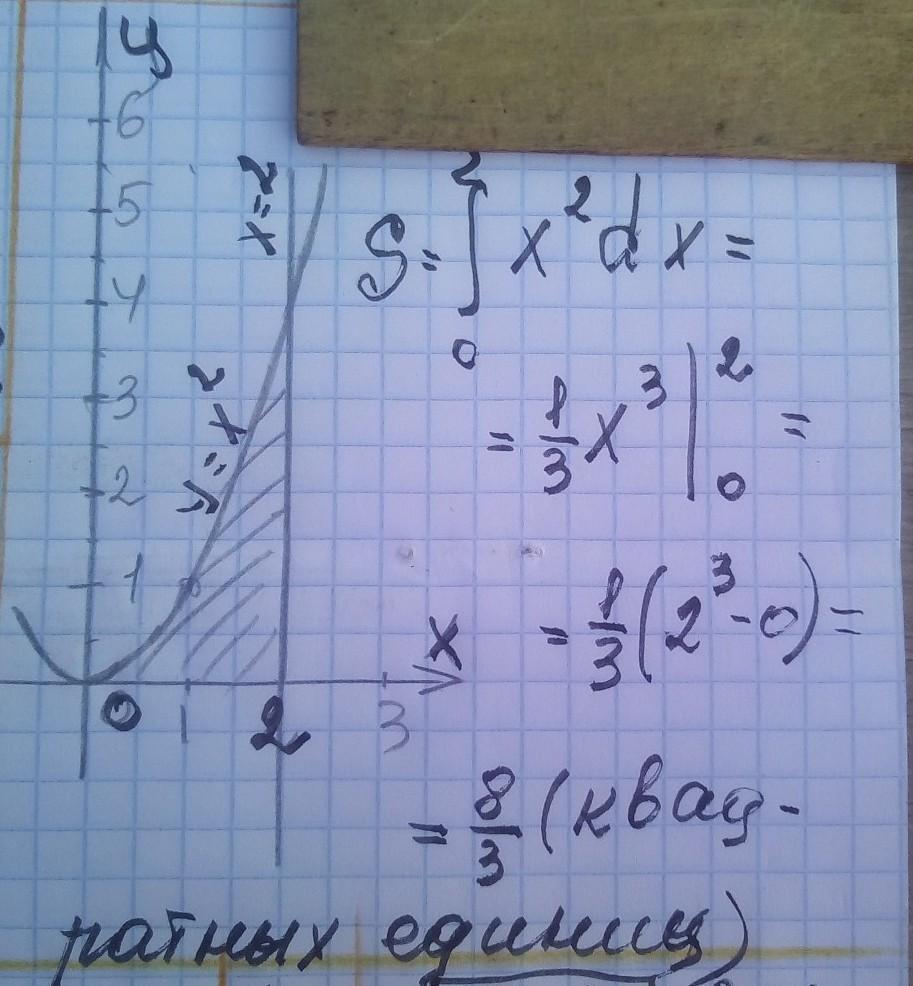 у
6
5
4
3
2
1
x=2
y=x²
x
0 1 2 3
S=∫₀² x²dx=
=1/3 x³|₀² =
=1/3(2³-0)=
=8/3 (квад-
ратных единиц)